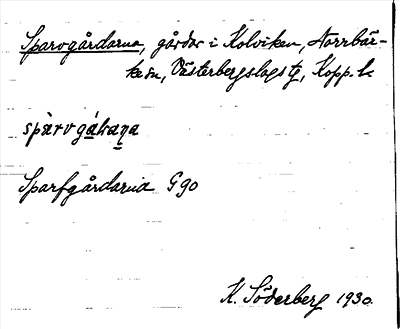 Sparvgårdarna, gårdar i Kolviken, Norrbär-
ke sn, Västerbergslags tg, Kopp. l.
spàrvgáhaṇa
Sparfgårdarna G 90
K. Söderberg 1930.